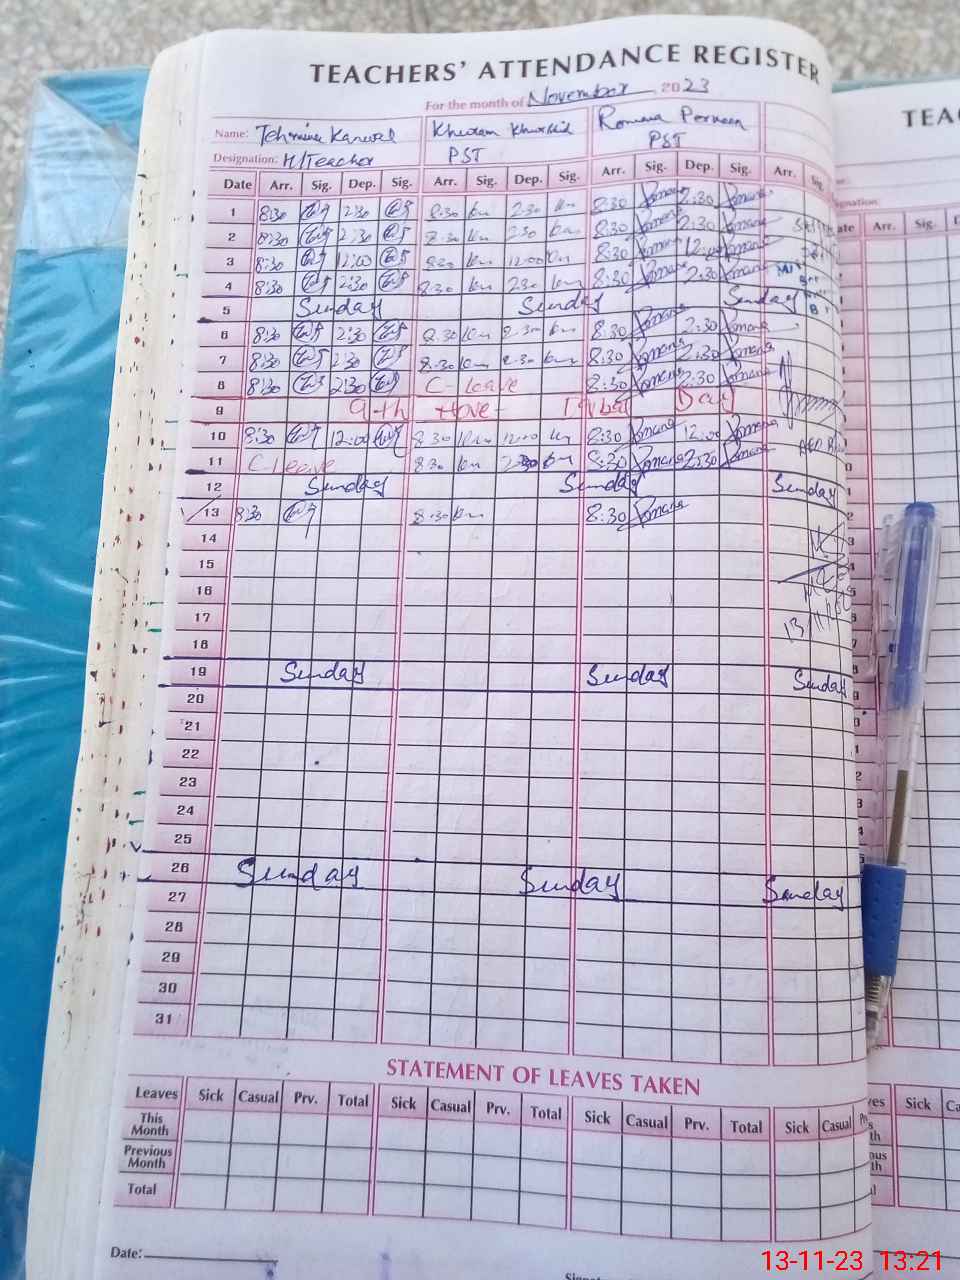 TEACHERS' ATTENDANCE REGISTER
TEAC
For the month of November, 2023
Name: Tehmina Kanwal Khuram Khurshid Romana Perveen
Designation: H/Teacher PST PST
Date Arr. Sig. Dep. Sig. Arr. Sig. Dep. Sig. Arr. Sig. Dep. Sig. Arr. Sig. ate Arr. Sig. D
1 8:30 2:30 8:30 km 2:30 km 8:30 Romana 2:30 Romana
2 8:30 2:30 8:30 km 2:30 km 8:30 Romana 2:30 Romana
3 8:30 12:00 8:30 km 12:00 km 8:30 Romana 12:00 Romana
4 8:30 2:30 8:30 km 2:30 km 8:30 Romana 2:30 Romana
5 Sunday Sunday Sunday
6 8:30 2:30 8:30 km 2:30 km 8:30 Romana 2:30 Romana
7 8:30 2:30 8:30 km 2:30 km 8:30 Romana 2:30 Romana
8 8:30 2:30 C-Leave 8:30 Romana 2:30 Romana
9 9th Nove- Iqbal Day
10 8:30 12:00 8:30 km 12:00 km 8:30 Romana 12:00 Romana
11 C-Leave 8:30 km 2:30 km 8:30 Romana 2:30 Romana
12 Sunday Sunday Sunday
13 8:30 8:30 km 8:30 Romana
14
15
16
17
18
19 Sunday Sunday Sunday
20
21
22
23
24
25
26 Sunday Sunday Sunday
27
28
29
30
31
STATEMENT OF LEAVES TAKEN
Leaves Sick Casual Prv. Total Sick Casual Prv. Total Sick Casual Prv. Total Sick Casual Sick Ca
This Month
Previous Month
Total
Date:
13-11-23 13:21